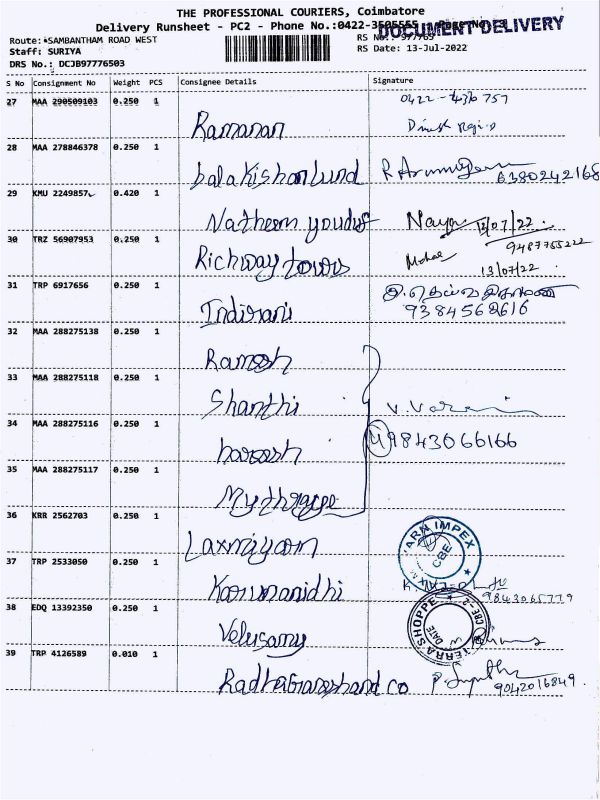 THE PROFESSIONAL COURIERS, Coimbatore
Delivery Runsheet - PC2 - Phone No.:0422-3505555
DOCUMENT DELIVERY
Route: SAMBANTHAM ROAD WEST
RS No.: 977765
Staff: SURIYA
RS Date: 13-Jul-2022
DRS No.: DCJB97776503
S No Consignment No Weight PCS Consignee Details Signature
27 MAA 290509103 0.250 1 Ramanan
28 MAA 278846378 0.250 1 balakishanlund 6380242168
29 KMU 2249857 0.420 1 Natheem yousuf 13/07/22
9487765222
30 TRZ 56907953 0.250 1 Richway towers 13/07/22
31 TRP 6917656 0.250 1 Indirani 9384562616
32 MAA 288275138 0.250 1 Ramesh
33 MAA 288275118 0.250 1 Shanthi
34 MAA 288275116 0.250 1 4 9843066166
35 MAA 288275117 0.250 1
36 KRR 2562703 0.250 1 IMPEX CBE
37 TRP 2533050 0.250 1 Karunanidhi 9843065779
38 EDQ 13392350 0.250 1 Velusamy TERRA SHOPPE CBE-2 DATE
39 TRP 4126589 0.010 1 9042016849